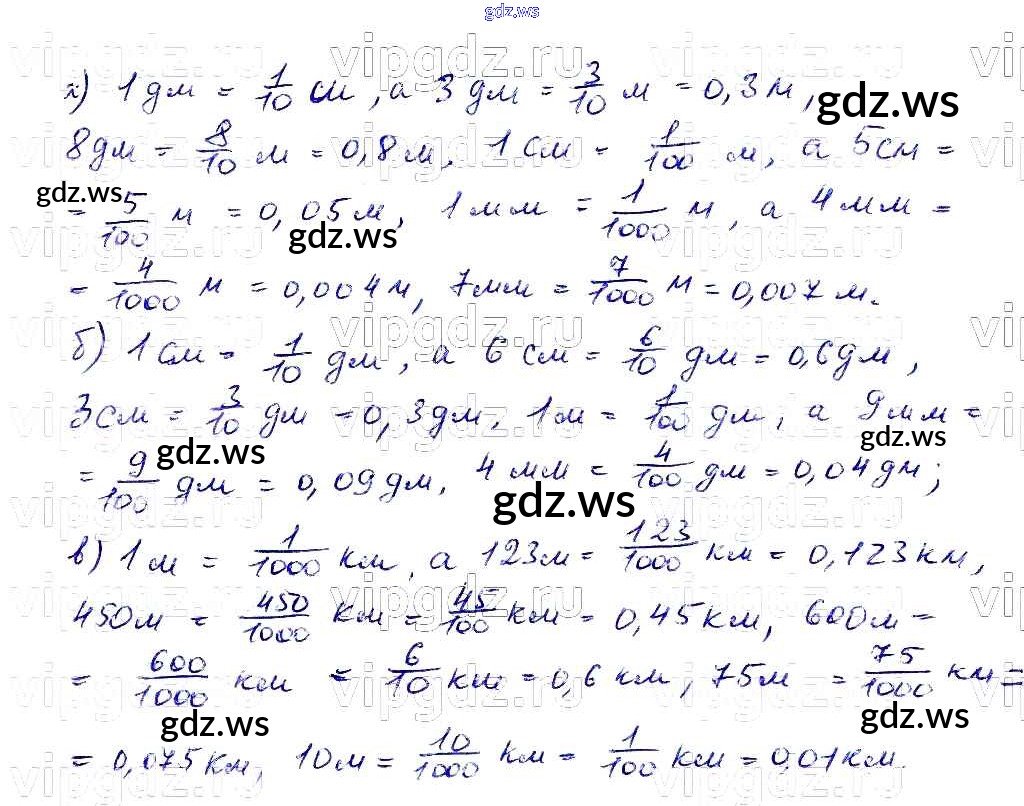 gdz.ws
vipgdz.ru vipgdz.ru vipgdz.ru vi
а) 1 дм = 1/10 см, а 3 дм = 3/10 м = 0,3 м,
gdz.ws
8 дм = 8/10 м = 0,8 м, 1 см = 1/100 м, а 5 см =
gdz.ws
= 5/100 м = 0,05 м, 1 мм = 1/1000 м, а 4 мм =
gdz.ws
= 4/1000 м = 0,004 м, 7 мм = 7/1000 м = 0,007 м.
vipgdz.ru vipgdz.ru vipgdz.ru vi
б) 1 см = 1/10 дм, а 6 см = 6/10 дм = 0,6 дм,
3 см = 3/10 дм = 0,3 дм, 1 м = 1/100 дм, а 9 мм =
gdz.ws gdz.ws
= 9/100 дм = 0,09 дм, 4 мм = 4/100 дм = 0,04 дм;
gdz.ws
в) 1 м = 1/1000 км, а 123 м = 123/1000 км = 0,123 км,
vipgdz.ru vipgdz.ru vipgdz.ru vi
450 м = 450/1000 км = 45/100 км = 0,45 км, 600 м =
= 600/1000 км = 6/10 км = 0,6 км, 75 м = 75/1000 км =
gdz.ws gdz.ws
= 0,075 км, 10 м = 10/1000 км = 1/100 км = 0,01 км.